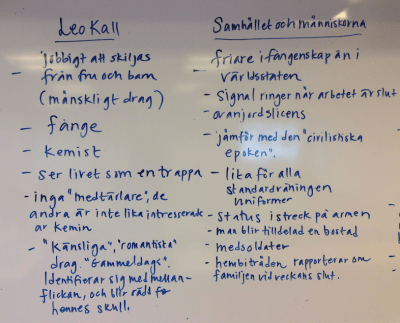 Leo Kall
"jobbigt att skiljas
- från fru och barn
(månskligt drag)
- fånge
- kemist
- ser livet som en trappa
- inga "medtärlare", de
andra är inte lika intresserade
av kemin
- "Känsliga", "romantista"
drag. "Gammeldags".
Identifierar sig med mellan-
flickan, och blir rädd för
hennes skull.
Samhället och människorna
- friare i fångenskap än i
världsstaten
- signal ringer når arbetet är slut
- ovanjordslicens
- jämför med den "civilishska
epoken".
- lika för alla
standardvåningen
uniformer
- status i streck på armen
- man blir tilldelad en bostad
- medsoldater
- hembiträden rapporterar om
familjen vid veckans slut.